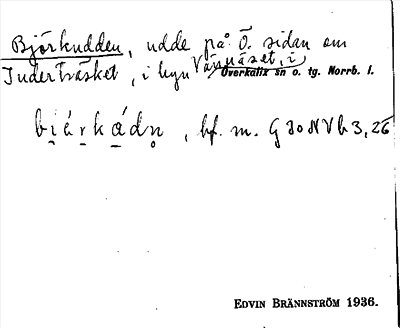 Björkudden, udde på Ö. sidan om
Inderträsket, i byn Vännäset, i
Överkalix sn o. tg. Norrb. l.
bi̯ärkádn̥, bf. m. G 30 NV b 3, 26
EDVIN BRÄNNSTRÖM 1936.